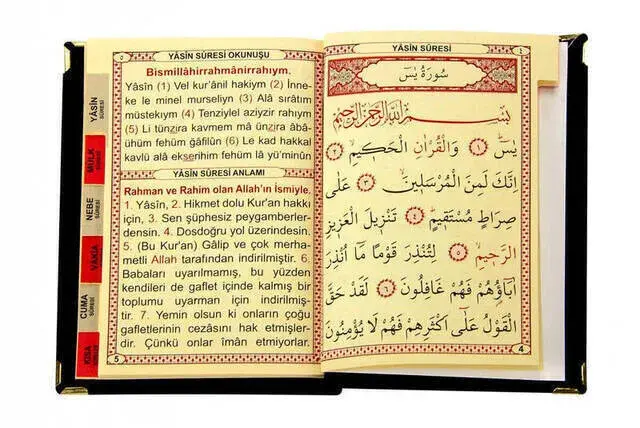 YÂSİN SÛRESİ OKUNUŞU
٥
Bismillâhirrahmânirrahıym.
Yâsîn (1) Vel kur'ânil hakiym (2) İnne-
ke le minel murseliyn (3) Alâ sırâtım
müstekıym (4) Tenziylel aziyzir rahıym
(5) Li tünzira kavmem mâ ünzira âbâ-
ühüm fehüm ğâfilûn (6) Le kad hakkal
kavlü alâ ekserihim fehüm lâ yü'minûn
YÂSİN SÛRESİ ANLAMI
Rahman ve Rahim olan Allah'ın İsmiyle.
1. Yâsîn, 2. Hikmet dolu Kur'an hakkı
için, 3. Sen şüphesiz peygamberler-
densin. 4. Dosdoğru yol üzerindesin.
5. (Bu Kur'an) Gâlip ve çok merha-
metli Allah tarafından indirilmiştir. 6.
Babaları uyarılmamış, bu yüzden
kendileri de gaflet içinde kalmış bir
toplumu uyarman için indirilmiş-
tir. 7. Yemin olsun ki onların çoğu
gafletlerinin cezâsını hak etmişler-
dir. Çünkü onlar îmân etmiyorlar.
5
YÂSİN SÛRESİ
MÜLK SÛRESİ
NEBE SÛRESİ
VAKIA
CUMA SÛRESİ
KISA
YÂSİN SÛRESİ
٤
سُورَةُ يٰسٓ
بِسْمِ اللّٰهِ الرَّحْمٰنِ الرَّحِيمِ
يٰسٓ ﴿١﴾ وَالْقُرْاٰنِ الْحَكِيمِ ﴿٢﴾
اِنَّكَ لَمِنَ الْمُرْسَلِينَ ﴿٣﴾ عَلٰى
صِرَاطٍ مُسْتَقِيمٍ ﴿٤﴾ تَنْزِيلَ الْعَزِيزِ
الرَّحِيمِ ﴿٥﴾ لِتُنْذِرَ قَوْمًا مَٓا اُنْذِرَ
اٰبَٓاؤُهُمْ فَهُمْ غَافِلُونَ ﴿٦﴾ لَقَدْ حَقَّ
الْقَوْلُ عَلٰٓى اَكْثَرِهِمْ فَهُمْ لَا يُؤْمِنُونَ
4